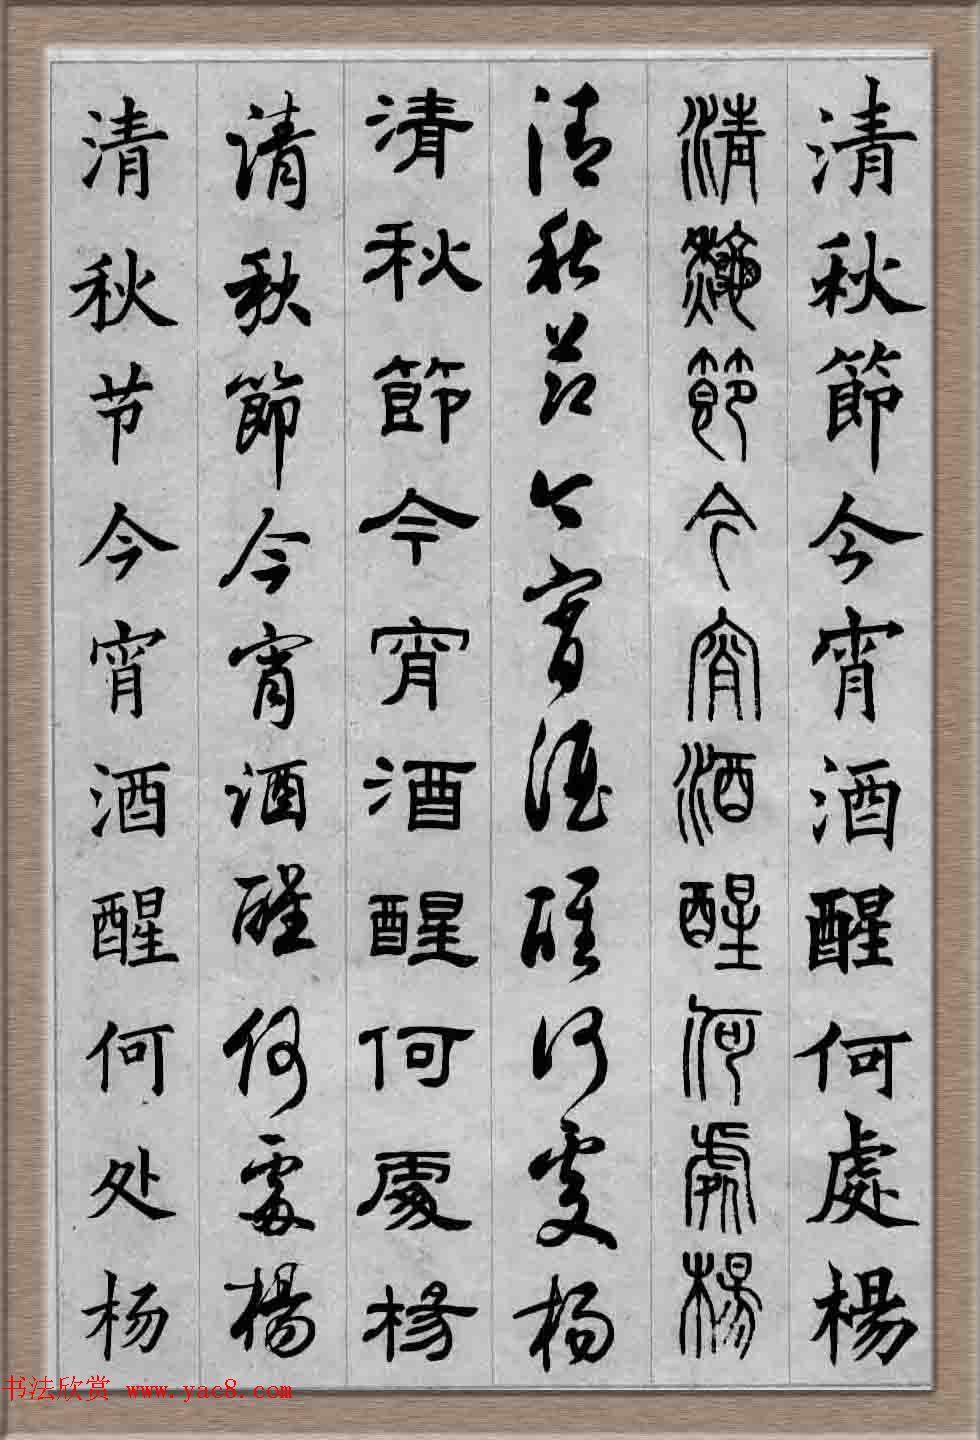 清秋節今宵酒醒何處楊
清秋節今宵酒醒何處楊
清秋節今宵酒醒何處楊
清秋節今宵酒醒何處楊
清秋節今宵酒醒何處楊
清秋节今宵酒醒何处杨
书法欣赏 www.yac8.com